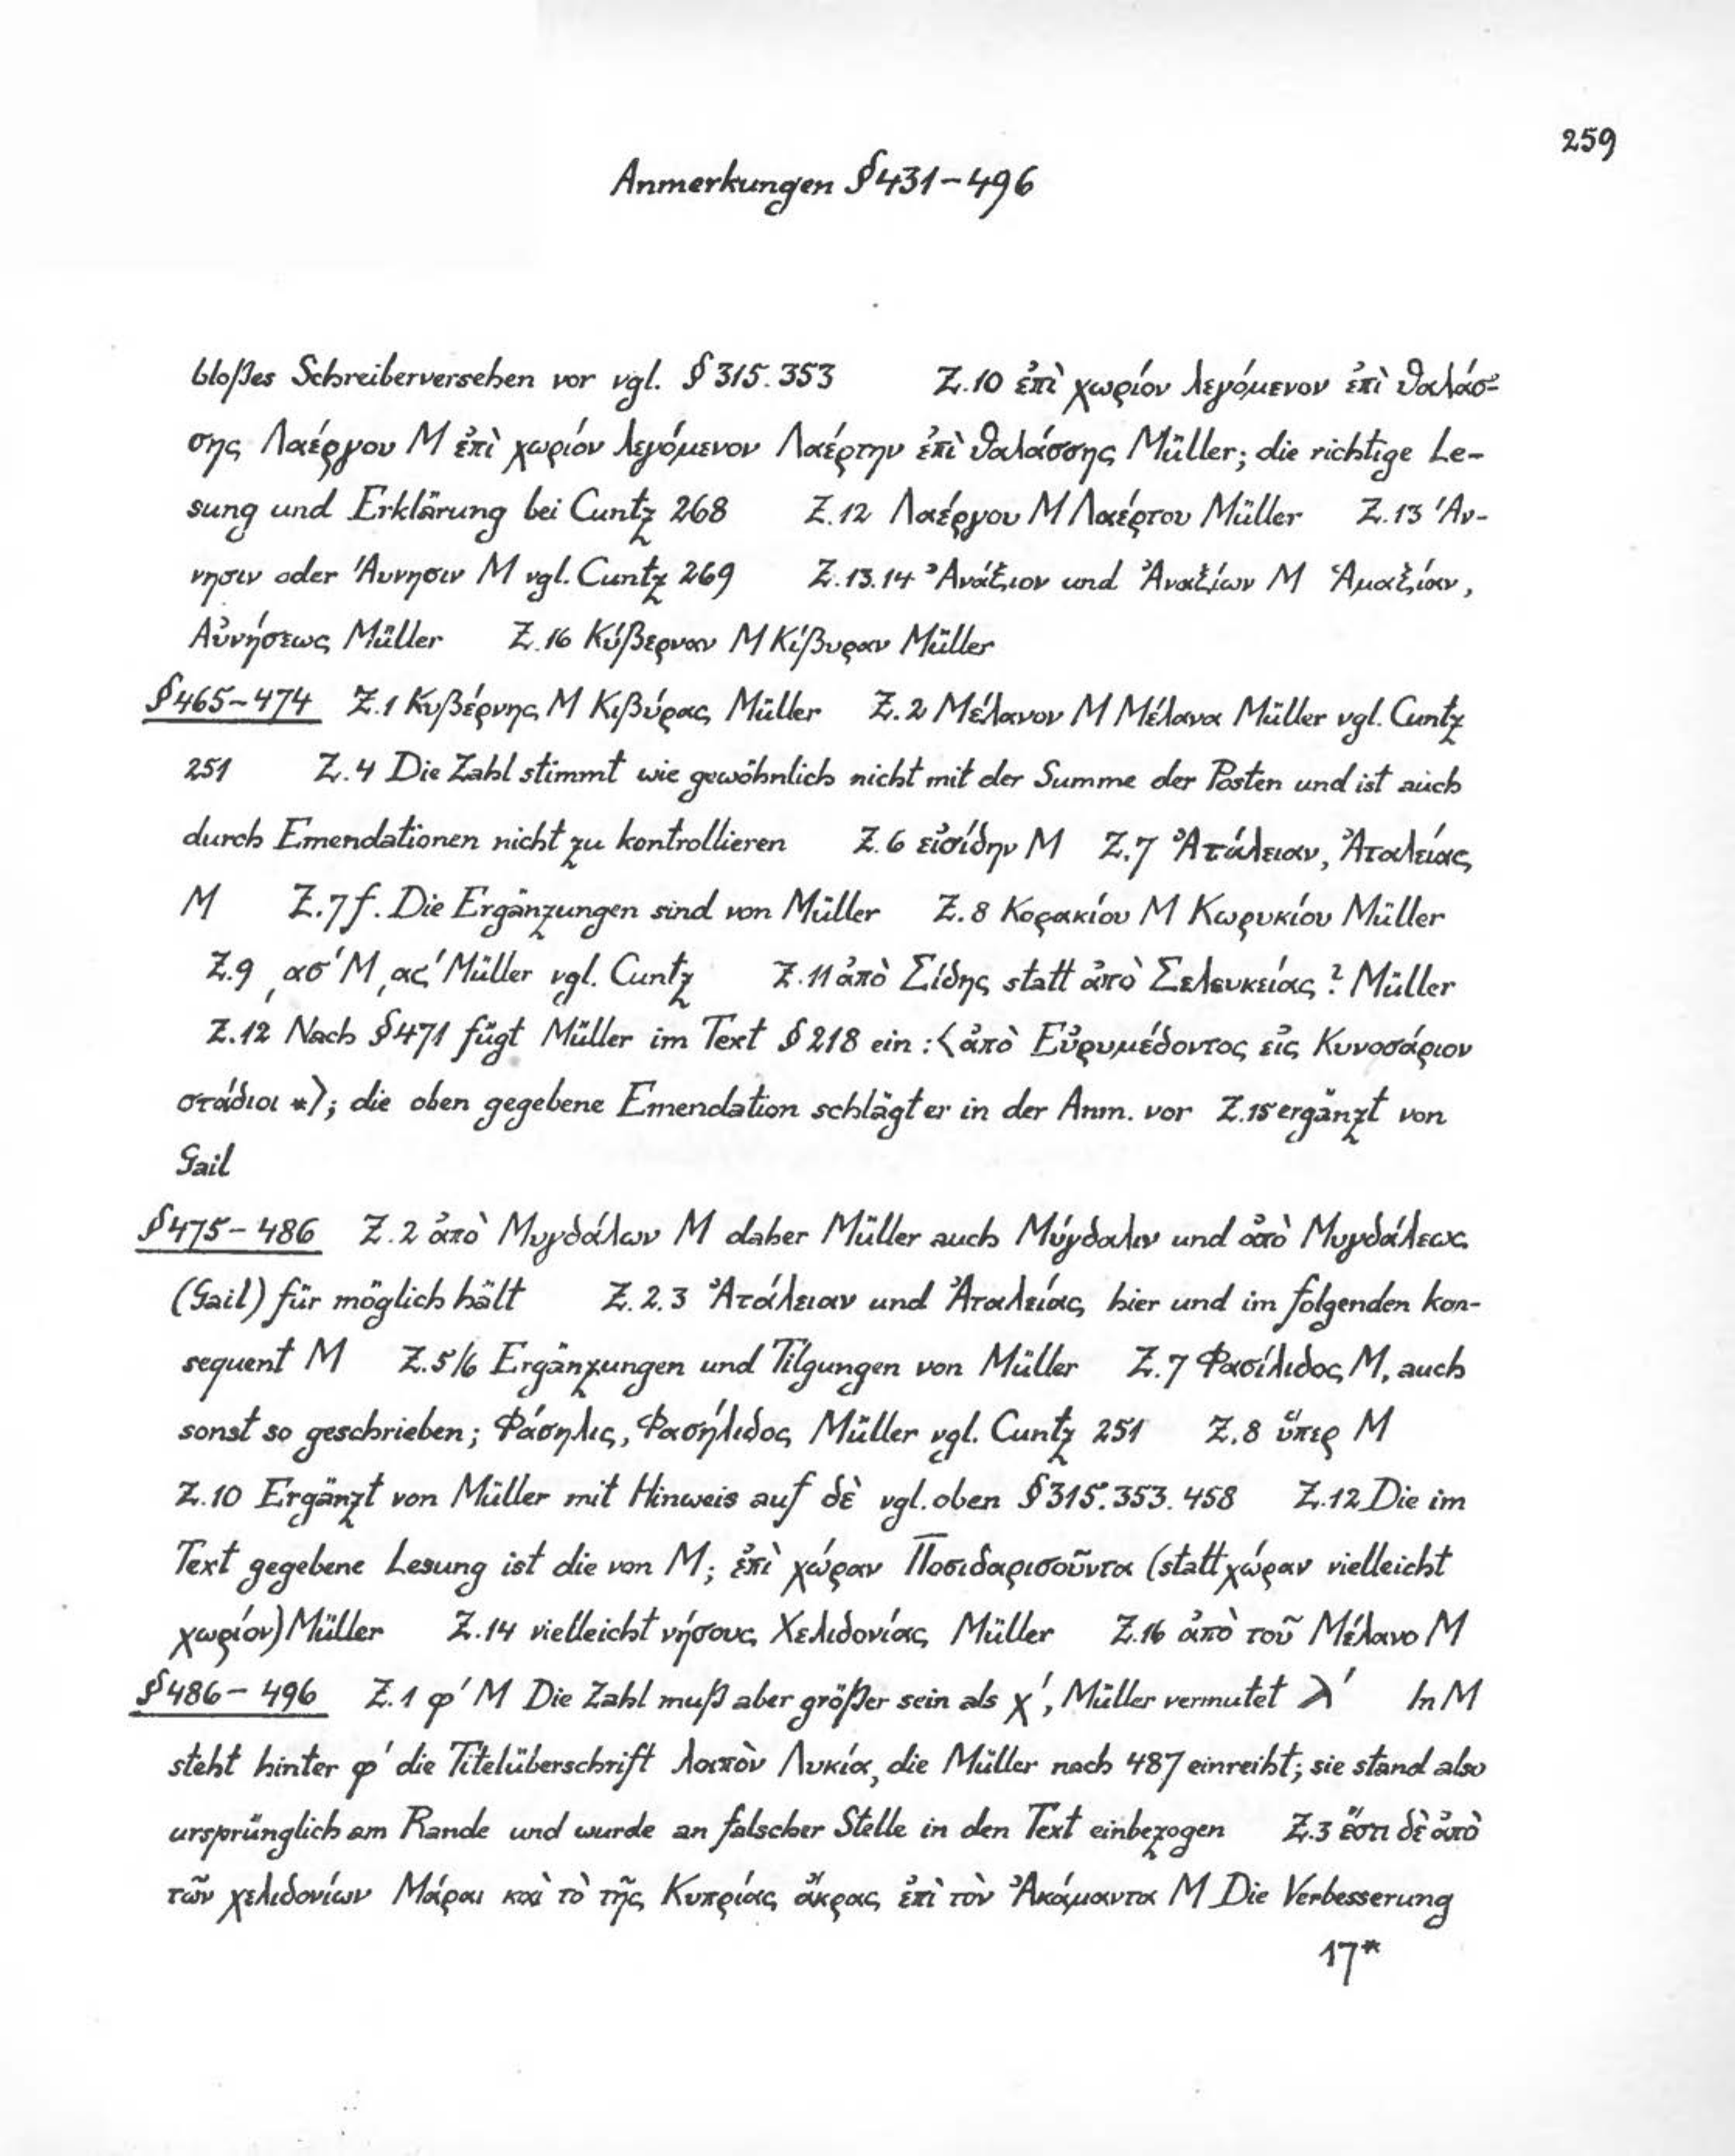 259
Anmerkungen § 431–496
bloßes Schreiberversehen vor vgl. § 315. 353 Z. 10 ἐπὶ χωρίον λεγόμενον ἐπὶ θαλάσ-
σης Λαέργου M ἐπὶ χωρίον λεγόμενον Λαέρτην ἐπὶ θαλάσσης Müller; die richtige Le-
sung und Erklärung bei Cuntz 268 Z. 12 Λαέργου M Λαέρτου Müller Z. 13 Ἄν-
νησιν oder Ἄυνησιν M vgl. Cuntz 269 Z. 13. 14 Ἀνάξιον und Ἀναξίων M Ἁμαξίαν,
Αὐνήσεως Müller Z. 16 Κύβερναν M Κίβυραν Müller
§ 465–474 Z. 1 Κυβέρνης M Κιβύρας Müller Z. 2 Μέλανον M Μέλανα Müller vgl. Cuntz
251 Z. 4 Die Zahl stimmt wie gewöhnlich nicht mit der Summe der Posten und ist auch
durch Emendationen nicht zu kontrollieren Z. 6 εἰσίδην M Z. 7 Ἀτάλειαν, Ἀταλείας
M Z. 7 f. Die Ergänzungen sind von Müller Z. 8 Κορακίου M Κωρυκίου Müller
Z. 9 ͵ασ' M ͵ας' Müller vgl. Cuntz Z. 11 ἀπὸ Σίδης statt ἀπὸ Σελευκείας? Müller
Z. 12 Nach § 471 fügt Müller im Text § 218 ein: ⟨ἀπὸ Εὐρυμέδοντος εἰς Κυνοσάριον
στάδιοι *⟩; die oben gegebene Emendation schlägt er in der Anm. vor Z. 15 ergänzt von
Gail
§ 475–486 Z. 2 ἀπὸ Μυγδάλων M daher Müller auch Μύγδαλιν und ἀπὸ Μυγδάλεως
(Gail) für möglich hält Z. 2. 3 Ἀτάλειαν und Ἀταλείας hier und im folgenden kon-
sequent M Z. 5/6 Ergänzungen und Tilgungen von Müller Z. 7 Φασίλιδος M, auch
sonst so geschrieben; Φάσηλις, Φασήλιδος Müller vgl. Cuntz 251 Z. 8 ὕπερ M
Z. 10 Ergänzt von Müller mit Hinweis auf δὲ vgl. oben § 315. 353. 458 Z. 12 Die im
Text gegebene Lesung ist die von M; ἐπὶ χώραν Ποσιδαρισοῦντα (statt χώραν vielleicht
χωρίον) Müller Z. 14 vielleicht νήσους Χελιδονίας Müller Z. 16 ἀπὸ τοῦ Μέλανο M
§ 486–496 Z. 1 φ' M Die Zahl muß aber größer sein als χ', Müller vermutet ϡ' In M
steht hinter φ' die Titelüberschrift λοιπὸν Λυκία, die Müller nach 487 einreiht; sie stand also
ursprünglich am Rande und wurde an falscher Stelle in den Text einbezogen Z. 3 ἔστι δὲ ἀπὸ
τῶν χελιδονίων Μάραι καὶ τὸ τῆς Κυπρίας ἄκρας ἐπὶ τὸν Ἀκάμαντα M Die Verbesserung
17*